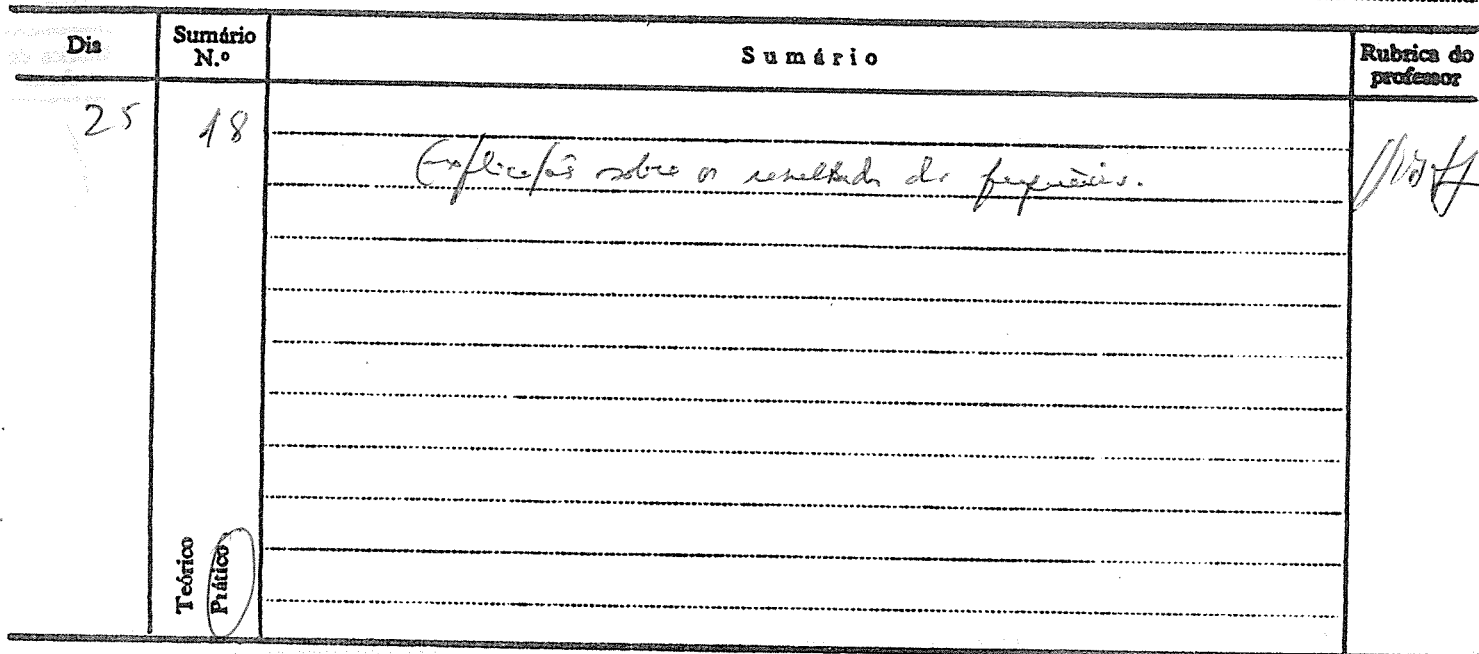 Dia
Sumário N.º
Sumário
Rubrica do professor
25
18
Explicação sobre os resultados das frequências.
Teórico
Prático